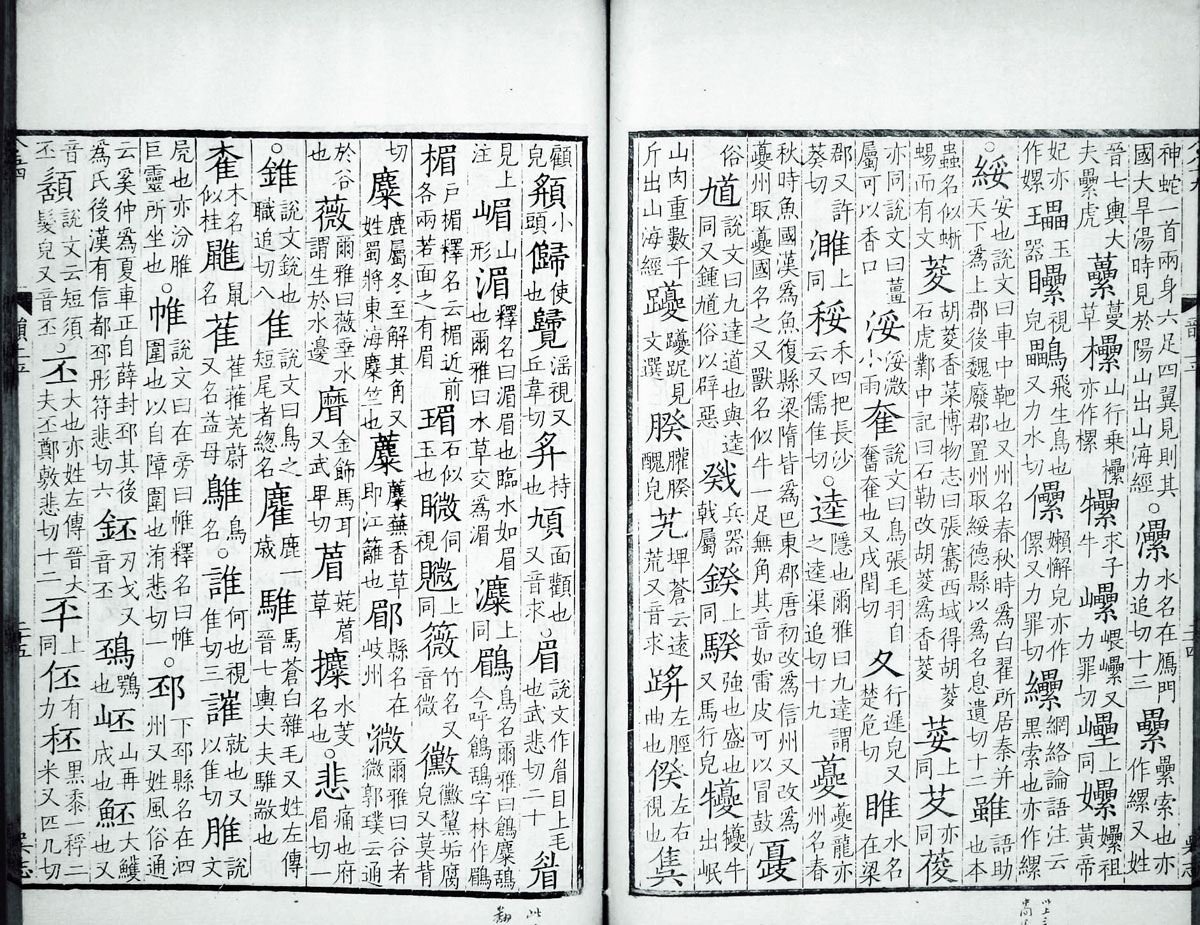 神蛇一首兩身六足四翼見則其國大旱湯時見於陽山出山海經。㶟水名在鴈門力追切十三纍纍索也亦作縲又姓
晉七輿大夫纍虎虆蔓草欙山行乗欙亦作樏㹎求子牛㠥㟪㠥又力罪切壨上同嫘嫘祖黃帝
妃亦作㜦瓃玉器視皃鸓飛生鳥也又力水切儽嬾懈皃亦作儽又力罪切纝網絡論語注云黑索也亦作縲
。綏安也說文曰車中靶也又州名春秋時爲白翟所居秦并天下爲上郡後魏廢郡置州取綏德縣以爲名息遺切十二雖語助也本
蟲名似蜥蜴而有文荾胡荾香菜博物志曰張騫西域得胡荾石虎鄴中記曰石勒改胡荾爲香荾荽上同亦同葰
亦同說文曰薑屬可以香口浽浽微小雨奞說文曰鳥張毛羽自奮奞也又戌閏切夊行遲皃又楚危切睢水名在梁
郡又許葵切濉上同桵禾四把長沙云又儒隹切。逵隱也爾雅曰九達謂之逵渠追切十九夔夔龍亦州名春
秋時魚國漢爲魚復縣梁隋皆爲巴東郡唐初改爲信州又改爲夔州取夔國名之又獸名似牛一足無角其音如雷皮可以冒鼓
俗馗說文曰九達道也與逵同又鍾馗俗以辟惡戣兵器戟屬鍨上同騤強也盛也又馬行皃犪犪牛出岷
山肉重數千斤出山海經躨躨跜見文選䐬䑏䐬醜皃艽埤蒼云遠荒又音求左脛曲也左右視也
顧皃小頭使也淫視又丘韋切持也頄面顴也又音求。眉說文作睂目上毛也武悲切二十睂
見上注嵋山形湄釋名曰湄眉也臨水如眉也爾雅曰水草交爲湄上同鶥鳥名爾雅曰鶬麋鴰今呼鶬鴰字林作鶥
楣戸楣釋名云楣近前各兩若面之有眉瑂石似玉也䁲伺視覹上同竹名又音微黴黴黧垢腐皃又莫背
切麋鹿屬冬至解其角又姓蜀將東海麋竺也蘪蘪蕪香草即江蘺也郿縣名在岐州溦爾雅曰谷者溦郭璞云通
於谷也薇爾雅曰薇垂水謂生於水邊金飾馬耳又武甲切葿葿草攗水荾名也。悲痛也府眉切一
。錐說文銳也職追切八隹說文曰鳥之短尾者總名鹿一歳騅馬蒼白雜毛又姓左傳晉七輿大夫騅歂也
木名似桂鼠名萑萑蓷茺蔚又名益母鵻鳥名。誰何也視隹切三就也又以隹切脽說文
屍也亦汾脽巨靈所坐也。帷說文曰在旁曰帷釋名曰帷圍也以自障圍也洧悲切一。邳下邳縣名在泗州又姓風俗通
云奚仲爲夏車正自薛封邳其後爲氏後漢有信都邳彤符悲切六鉟刃戈又音丕鴀也岯山再成也魾大鱯也又
音丕說文云短須髮皃又音丕。丕大也亦姓左傳晉大夫丕鄭敷悲切十二㔻同伾有力秠黑黍一稃二米又匹几切